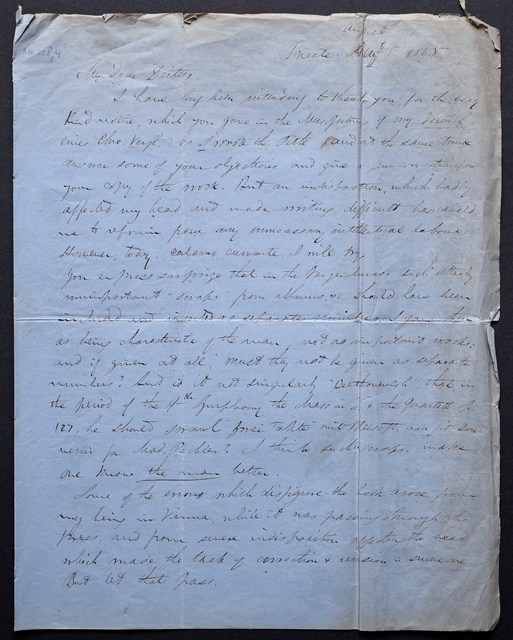 August
Trieste 1865
My Dear Deiters
I have long been intending to thank you for the very
kind notice, which you gave in the of my
Chro Verz. as I wrote the title and at the same time
answer some of your objections and give you
your copy of the work. But an indisposition, which badly
affected my head and made writing difficult has caused
me to refrain from any unnecessary intellectual labour.
However, today, calamo currente, I will try.
You express surprize that in the Verzeichniss such utterly
unimportant scraps from albums, &c. should have been
included and as separate
as being characteristic of the man, not as important works;
and if given at all must they not be given as separate
numbers? And is it not singularly that in
the period of the 9th Symphony the Mass in D & the Quartett Op.
127, he should scrawl
for Mad. Pachler? I think such scraps make
one know the man better.
Some of the errors which disfigure the book arose from
my being in Vienna, while it was passing through the
press, and from severe indisposition of the head
which made the task of correction & revision a severe one.
But let that pass.